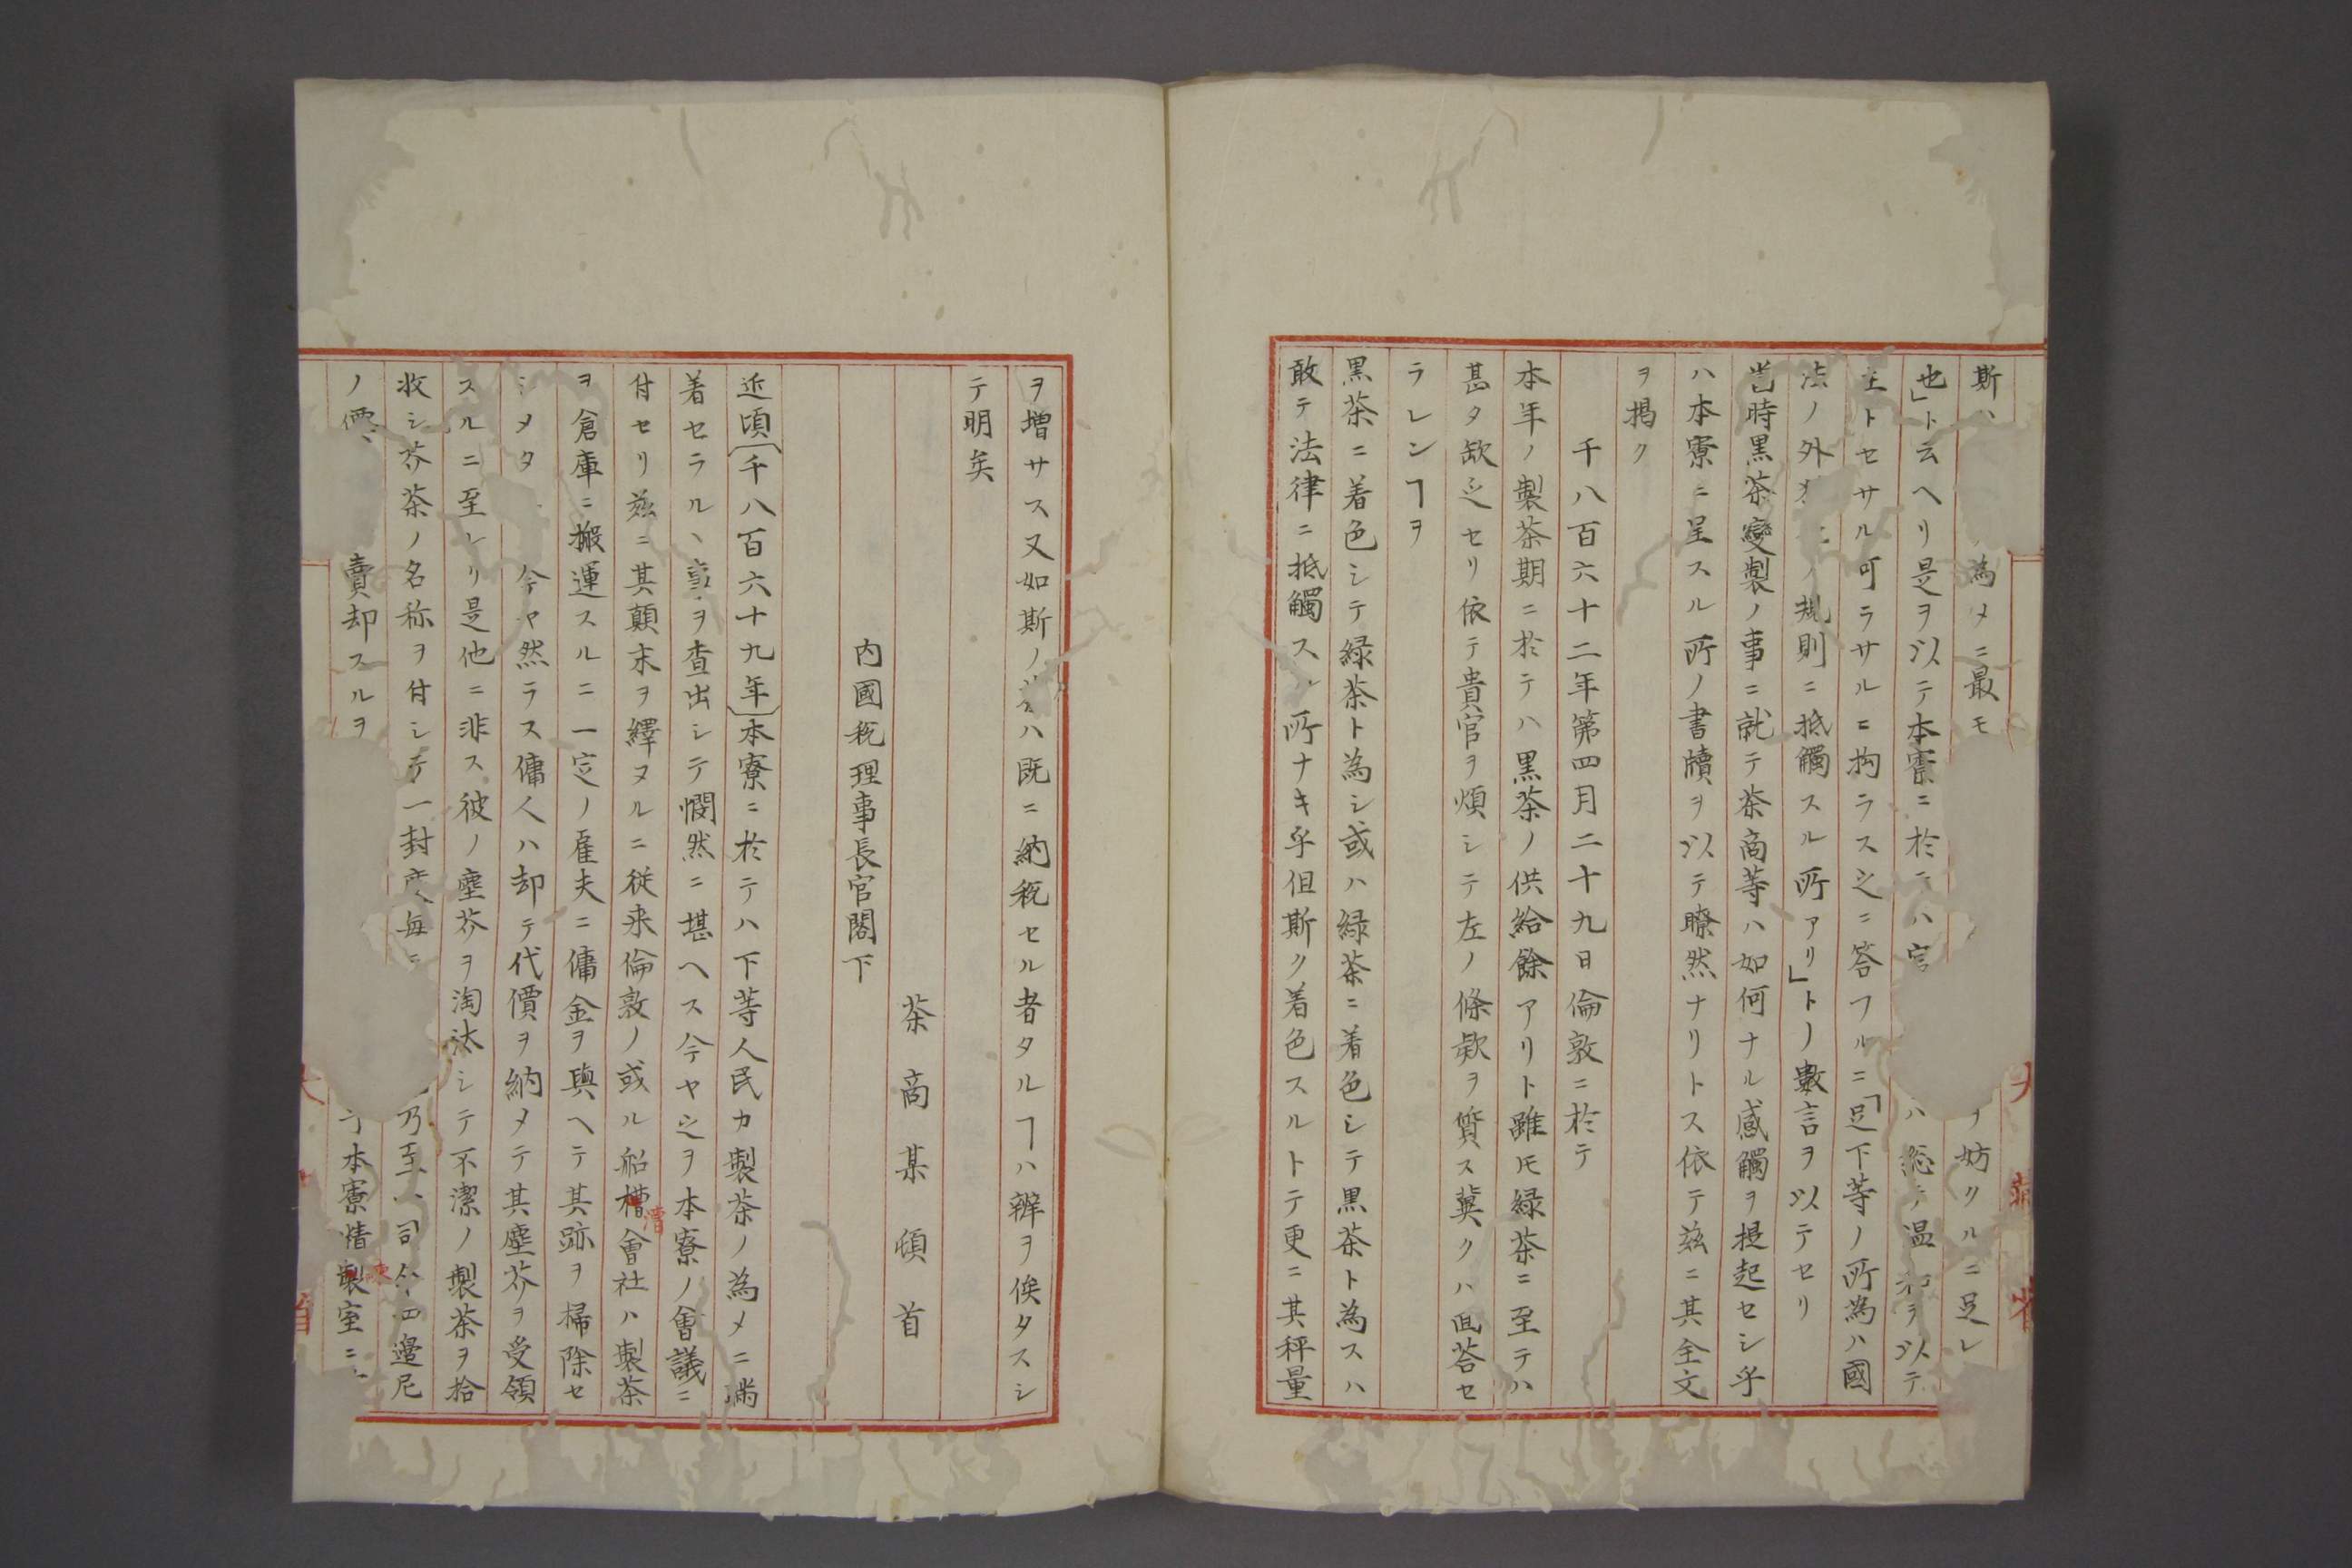 斯ハ 為メニ最モ ヲ妨クルニ足レ
也」ト云ヘリ是ヲ以テ本寮ニ於テハ官 ハ総テ温和ヲ以テ
主トセサル可ラサルニ拘ラス之ニ答フルニ「足下等ノ所為ハ國
法ノ外 ノ規則ニ抵觸スル所アリ」トノ數言ヲ以テセリ
當時黒茶變製ノ事ニ就テ茶商等ハ如何ナル感觸ヲ提起セシ乎
ハ本寮ニ呈スル所ノ書牘ヲ以テ瞭然ナリトス依テ茲ニ其全文
ヲ掲ク
千八百六十二年第四月二十九日倫敦ニ於テ
本年ノ製茶期ニ於テハ黒茶ノ供給餘アリト雖𪜈緑茶ニ至テハ
甚タ欠乏セリ依テ貴官ヲ煩シテ左ノ條款ヲ質ス冀クハ回荅セ
ラレンヿヲ
黒茶ニ着色シテ緑茶ト為シ或ハ緑茶ニ着色シテ黒茶ト為スハ
敢テ法律ニ抵觸スル所ナキ乎但斯ク着色スルトテ更ニ其秤量
ヲ増サス又如斯ノ茶ハ既ニ納税セル者タルヿハ辨ヲ俟タスシ
テ明矣
茶商某頓首
内國税理事長官閣下
近頃〔千八百六十九年〕本寮ニ於テハ下等人民カ製茶ノ為メニ瞞
着セラルヽ事ヲ査出シテ憫然ニ堪ヘス今ヤ之ヲ本寮ノ會議ニ
付セリ茲ニ其顛末ヲ繹ヌルニ従来倫敦ノ或ル船槽漕會社ハ製茶
ヲ倉庫ニ搬運スルニ一定ノ雇夫ニ傭金ヲ與ヘテ其跡ヲ掃除セ
シメタ 今ヤ然ラス傭人ハ却テ代價ヲ納メテ其塵芥ヲ受領
スルニ至レリ是他ニ非ス彼ノ塵芥ヲ淘汰シテ不潔ノ製茶ヲ拾
收シ芥茶ノ名称ヲ付シテ一封度毎ニ 乃至八司 四邉尼
ノ價 賣却スルヲ 本寮 製室ニ